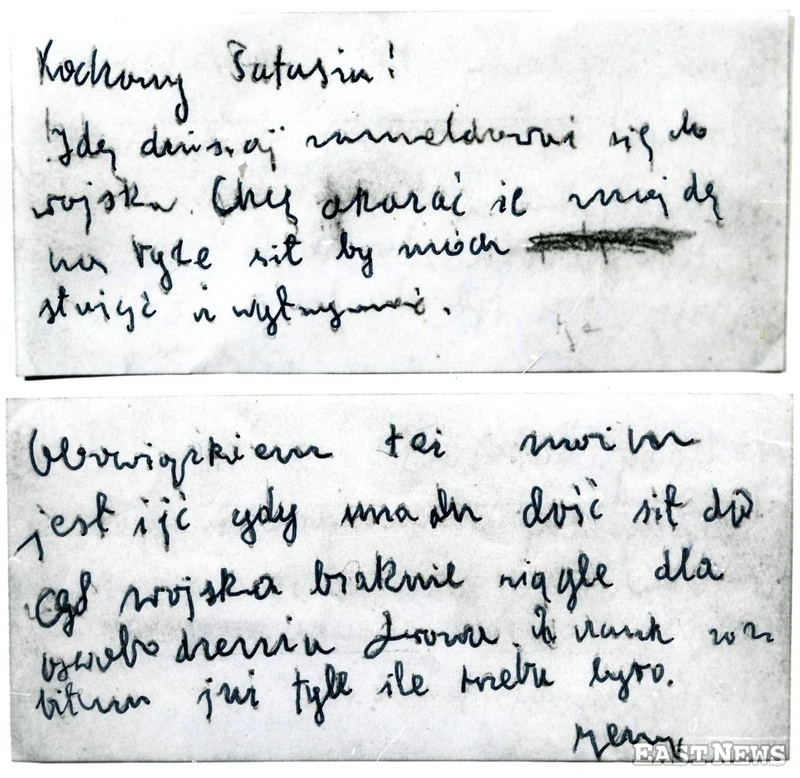 Kochany Tatusiu!
Idę dzisiaj zameldować się do
wojska. Chcę okazać że znajdę
na tyle sił by módz
służyć i wytrzymać.
Obowiązkiem też moim
jest iść gdy mam dość sił
wojska braknie ciągle dla
oswobodzenia Lwowa. Z nauk zro
biłem już tyle ile trzeba było.
Jerzy
EAST NEWS